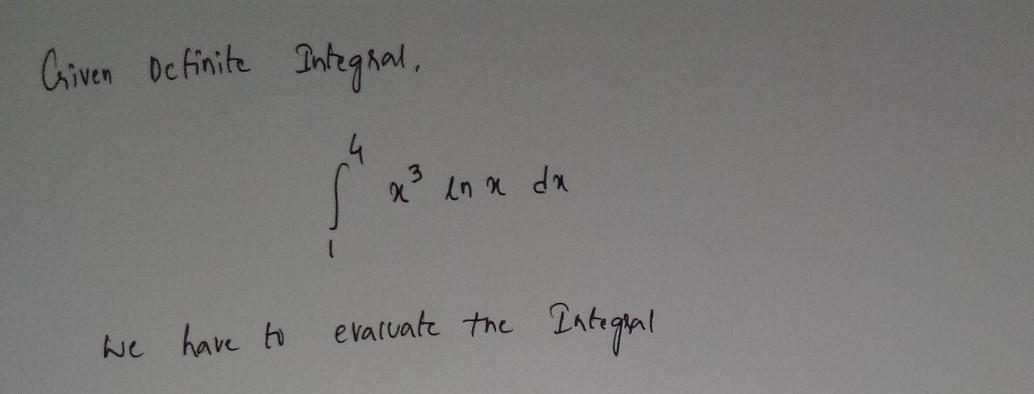 Given Definite Integral.
∫₁⁴ x³ ln x dx
we have to evaluate the Integral